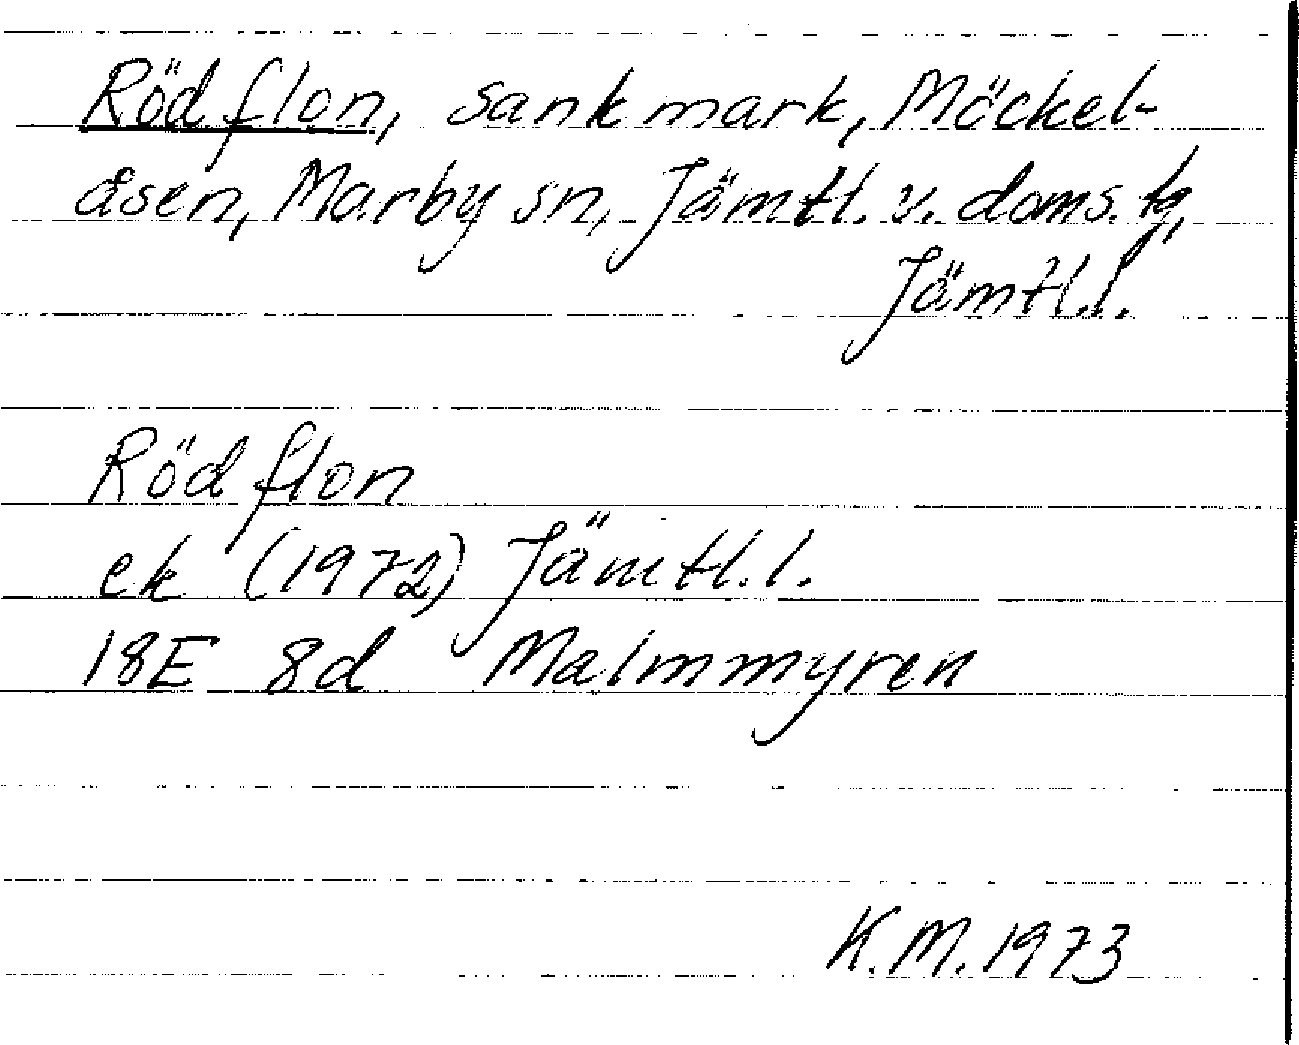 Rödflon, sankmark, Möckel-
åsen, Marby sn, Jämtl. v. doms. tg,
Jämtl. l.
Rödflon
ek (1972) Jämtl. l.
18E 8d Malmmyren
K.M. 1973